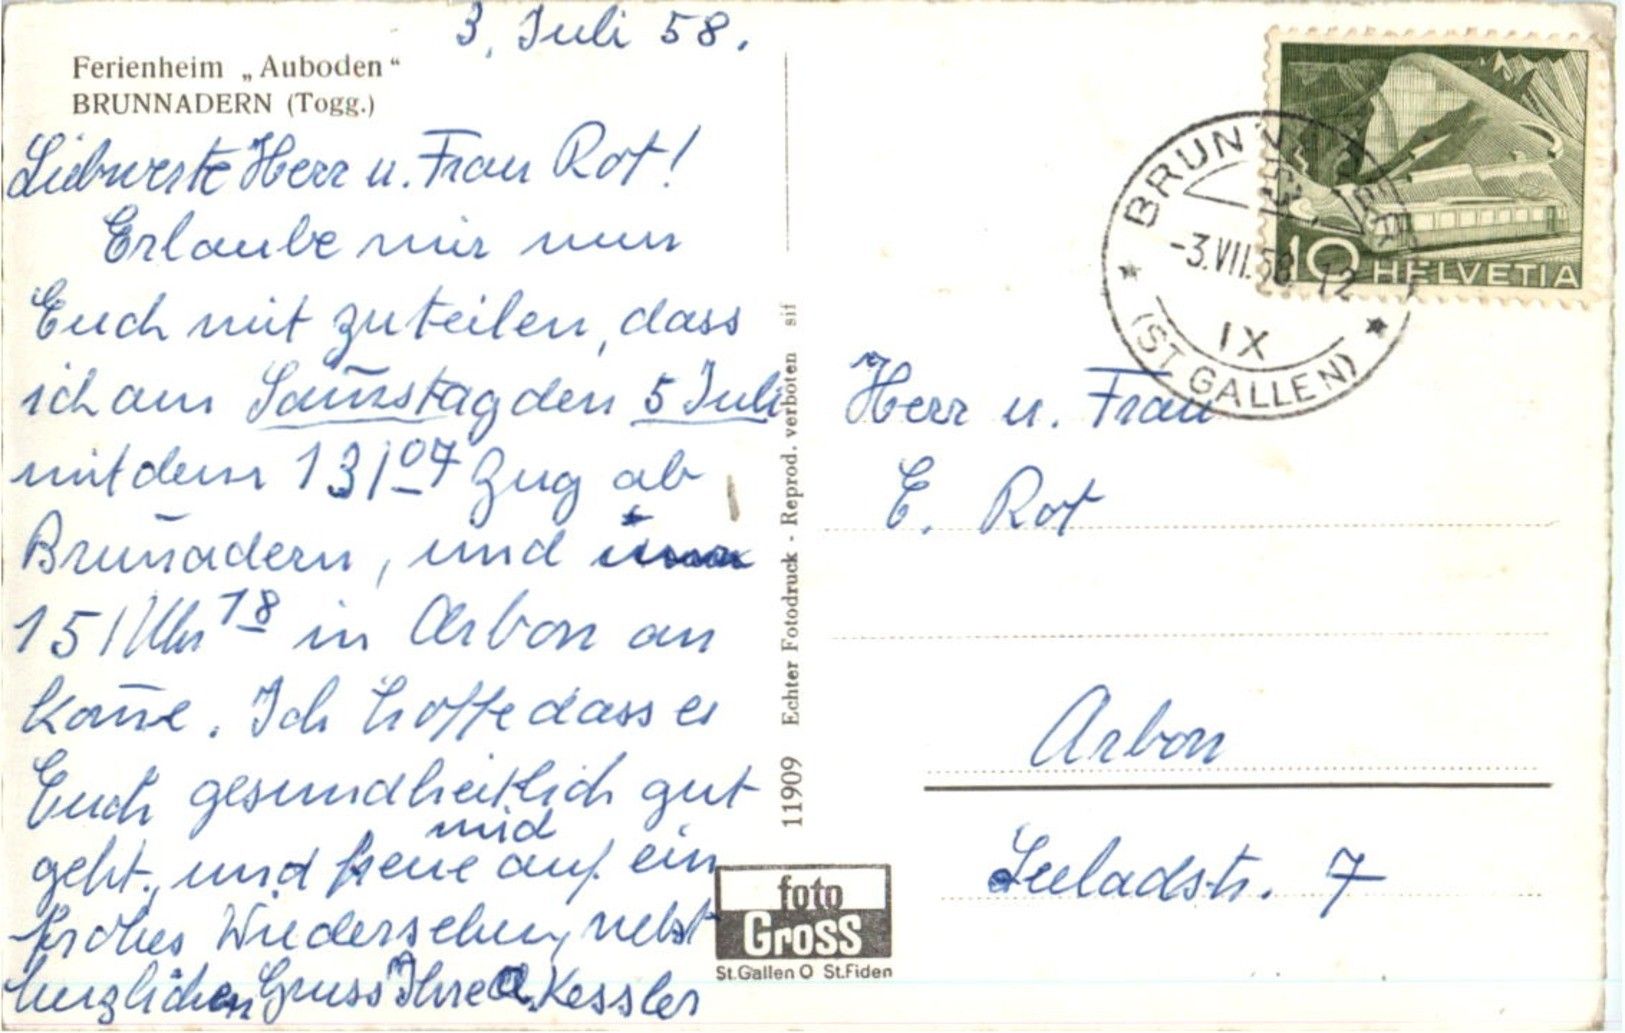 3. Juli 58.
Ferienheim „Auboden“
BRUNNADERN (Togg.)
Liebwerte Herr u. Frau Rot!
Erlaube mir nun
Euch mit zuteilen, dass
ich am Samstag den 5 Juli
mit dem 13/07 Zug ab
Brun̄adern, und
15/Uhr 18 in Arbon an
kom̄e. Ich hoffe dass es
Euch gesundheitlich gut
geht, und freue mich auf ein
frohes Wiedersehen, nebst
herzlichen Gruss Ihre A. Kessler
11909 Echter Fotodruck - Reprod. verboten sif
foto
Gross
St.Gallen O St.Fiden
BRUNNADERN
-3.VII.58 12
IX
(ST GALLEN)
10 HELVETIA
Herr u. Frau
E. Rot
Arbon
7